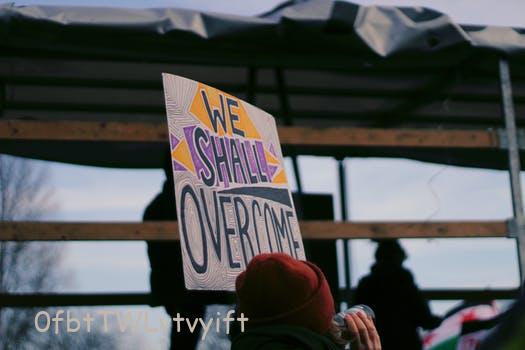 WE
SHALL
OVERCOME
0fbtTWLytvyift